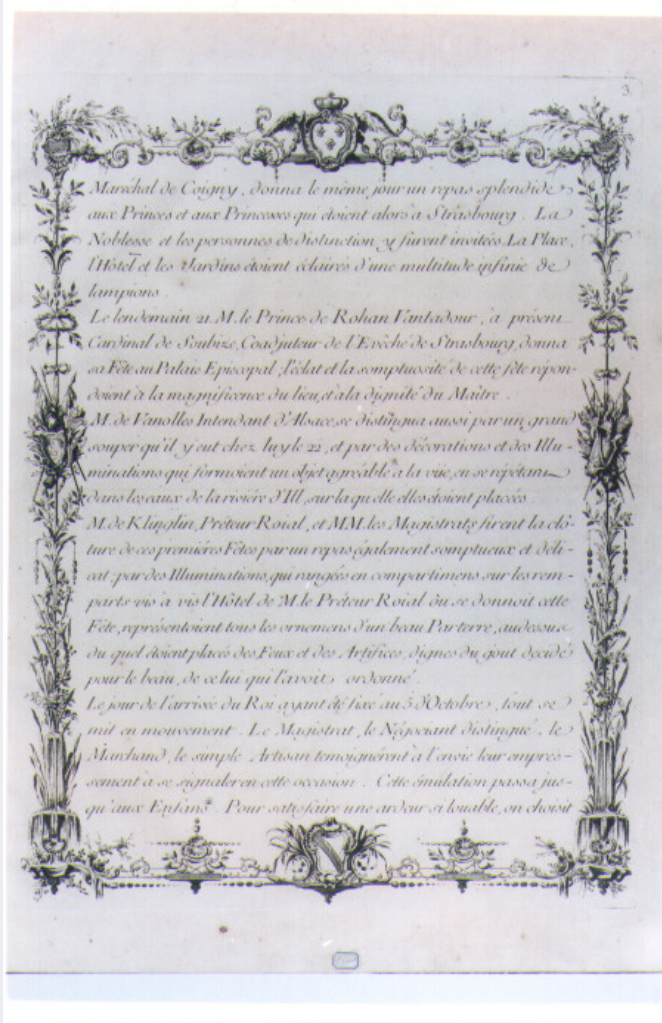 3
Maréchal de Coigny, donna le même jour un repas splendide
aux Princes et aux Princesses qui étoient alors à Strasbourg. La
Noblesse et les personnes de distinction y furent invitées. La Place,
l'Hôtel et les Jardins étoient éclairés d'une multitude infinie de
lampions.
Le lendemain 21. M. le Prince de Rohan Vantadour, à présent
Cardinal de Soubize, Coadjuteur de l'Evêché de Strasbourg, donna
sa Fête au Palais Episcopal, l'éclat et la somptuosité de cette fête répon-
doient à la magnificence du lieu, et à la dignité du Maître.
M. de Vanolles Intendant d'Alsace, se distingua aussi par un grand
souper qu'il y eut chez luy le 22, et par des décorations et des Illu-
minations qui formoient un objet agréable à la vüe, en se répétant
dans les eaux de la rivière d'Ill, sur la quelle elles étoient placées.
M. de Klinglin, Préteur Roial, et MM. les Magistrats firent la clô-
ture de ces premières Fêtes par un repas également somptueux et déli-
cat; par des Illuminations, qui rangées en compartimens sur les rem-
parts vis à vis l'Hôtel de M. le Préteur Roial où se donnoit cette
Fête, représentoient tous les ornemens d'un beau Parterre, au dessus
du quel étoient placés des Feux et des Artifices, dignes du gout décidé
pour le beau, de celui qui l'avoit ordonné.
Le jour de l'arrivée du Roi ayant été fixé au 5 d'Octobre, tout se
mit en mouvement. Le Magistrat, le Négociant distingué, le
Marchand, le simple Artisan temoignérent à l'envie leur empres-
sement à se signaler en cette occasion. Cette émulation passa jus-
qu'aux Enfans. Pour satisfaire une ardeur si louable, on choisit